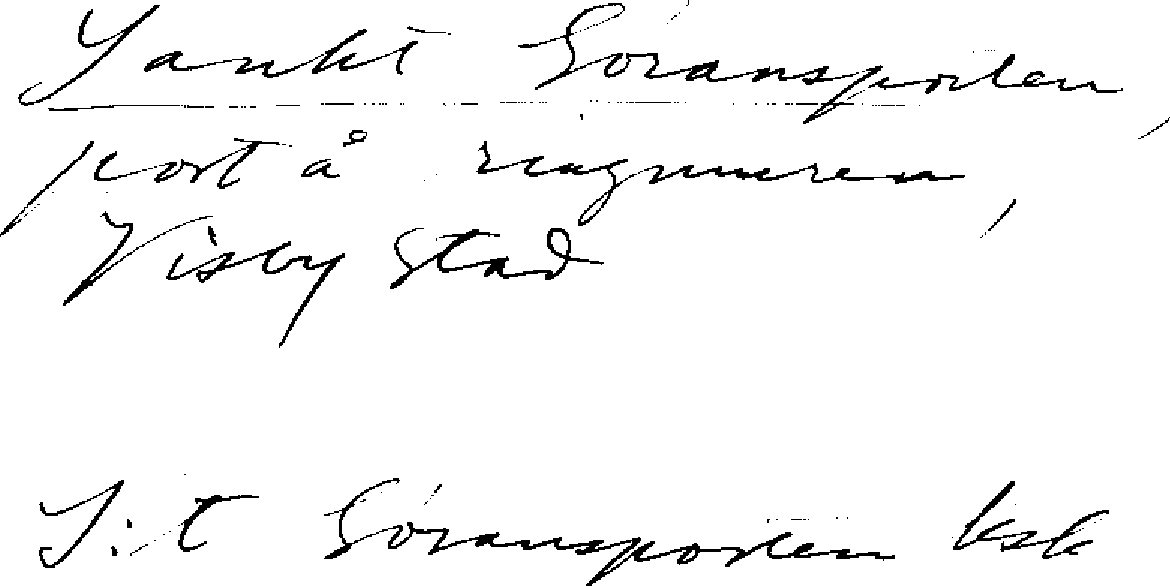 Sankt Göransporten,
port å ringmuren,
Visby stad
S:t Göransporten ksk